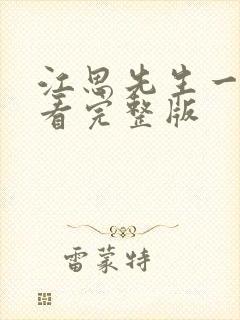 江思先生一
看完整版
雷蒙特